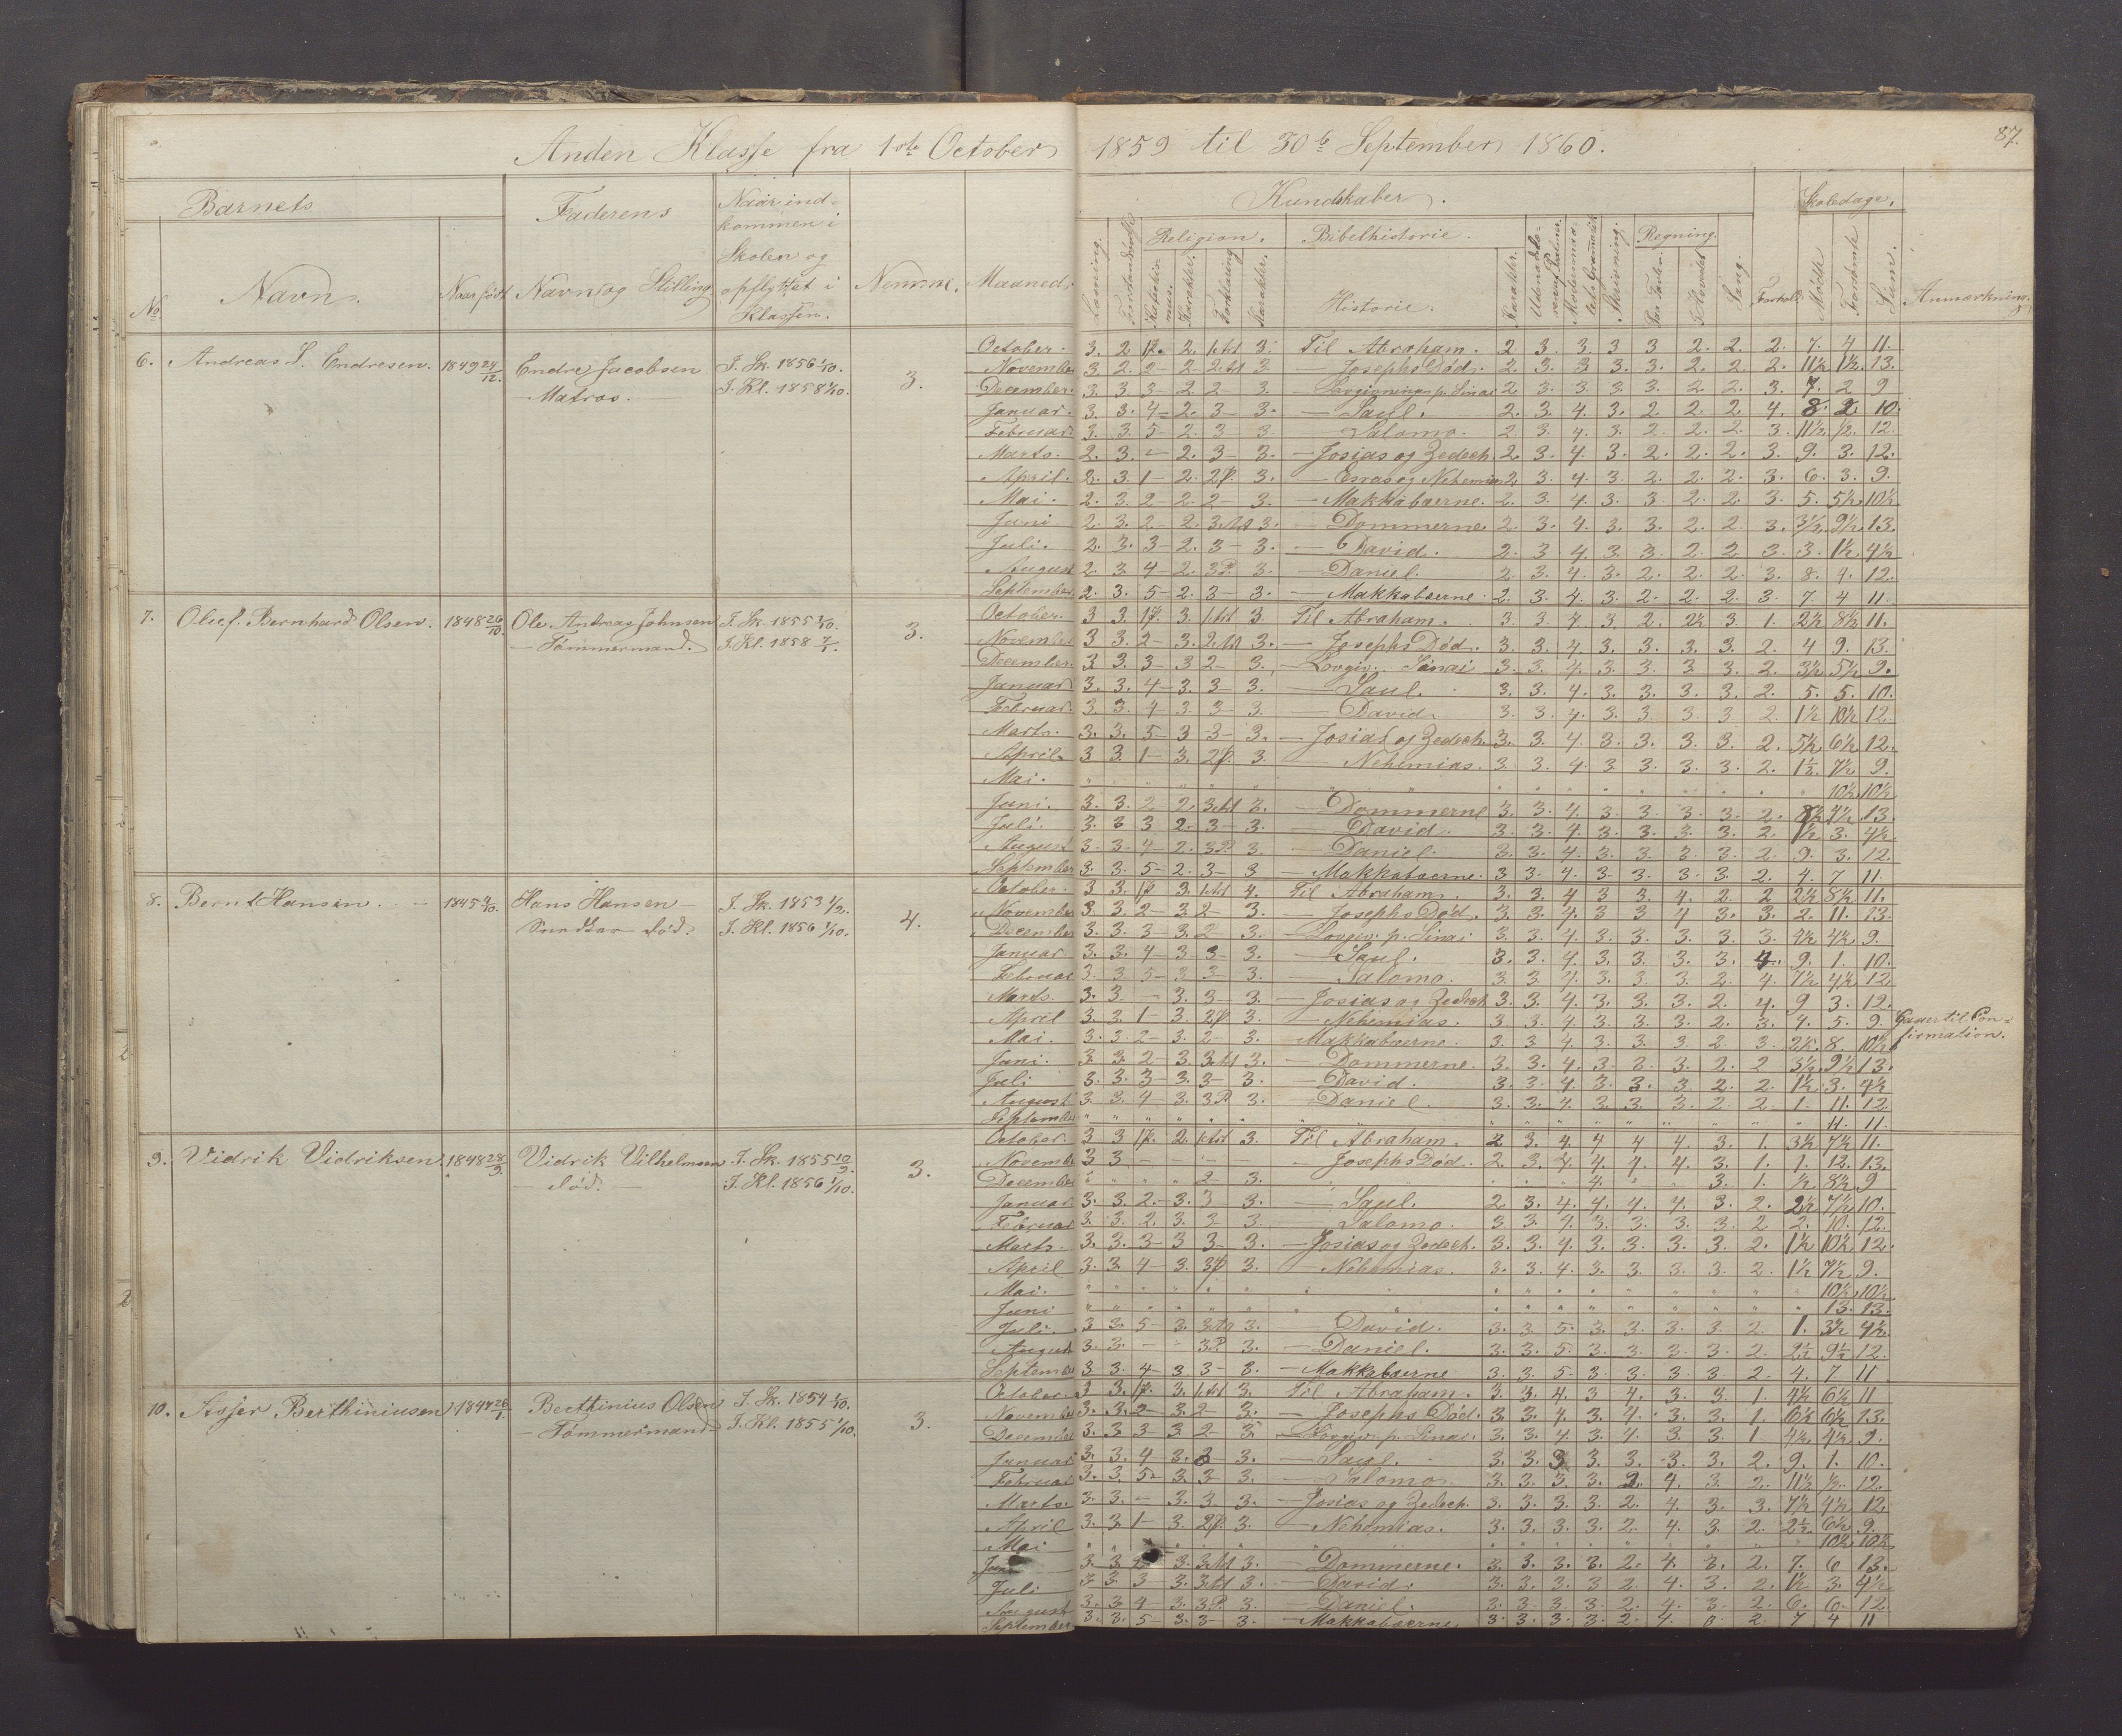 Anden Klasse fra 1ste October 1859 til 30te September 1860.
87.
Barnets
Faderens
Naar ind-
kommen i
Skolen og
opflyttet i
Klassen.
No.
Navn.
Naar født
Navn og Stilling
Nemme.
Maaned.
Kundskaber.
Skoledage.
Religion.
Bibelhistorie.
Regning.
Læsning.
Karakter.
Forklaring
Karakter.
Historie.
Karakter.
Skrivning.
Paa Tavlen.
I Hovedet
Sang.
Forhold.
Mødte
Forsømte
Sum.
Anmærkning.
6. Andreas S. Endresen. 1849 24/12. Endre Jacobsen I. Sk. 1856 1/10. 3.
Matros. I. Kl. 1858 1/10.
October. 3. 2 1 P. 2. 1 Art 3. Til Abraham. 2 3. 3. 3 3 2. 2. 2. 7. 4 11.
November 3 2 2 - 2 2 Art 3 - Josephs Død. 2. 3. 3 3. 3. 2. 2. 2. 11½ 1½ 13.
December. 3 3 3 - 2 2 3. - Lovgivningen p. Sinai 2 3. 3. 3. 3 2. 2. 3. 7. 2 9
Januar. 3 3. 4 - 2. 3 - 3. - Saul. 2. 3. 4. 3. 2 2. 2 4. 8. 2. 10.
Februar. 3. 3. 5 - 2. 3 - 3. - Salomo. 2. 3. 4. 3. 2. 2. 2. 3. 11½ ½. 12.
Marts. 2. 3. - 2. 3 - 3. - Josias og Zedech. 2. 3. 4. 3. 2. 2. 2. 3. 9. 3. 12.
April. 2. 3. 1 - 2. 2 P. 3. - Esras og Nehemias 2 3. 4. 3. 2. 2. 2. 3. 6. 3. 9.
Mai. 2. 3. 2 - 2. 2 - 3. - Makkabæerne. 2. 3. 4. 3. 3 2. 2 3. 5. 5½. 10½
Juni 2. 3. 2 - 2. 3 Art 3. - Dommerne. 2. 3. 4. 3. 3. 2. 2. 3. 3½. 9½. 13.
Juli. 2. 3. 3 - 2. 3 - 3. - David. 2. 3 4. 3. 3. 2 2 3. 3. 1½. 4½
August 2. 3 4 - 2. 3 P. 3. - Daniel. 2. 3. 4. 3. 2. 2. 2. 3. 8. 4. 12.
September. 2. 3. 5 - 2. 3 - 3. - Makkabæerne. 2. 3. 4. 3. 2. 2. 2. 3. 7 4 11.
7. Oluf. Bernhard Olsen. 1848 26/10. Ole Andreas Johnsen I. Sk. 1855 1/10. 3.
- Tømmermand. I. Kl. 1858 7/1.
October. 3 3. 1 P. 3. 1 Art 3 Til Abraham. 3. 3. 4. 3. 2. 2½ 3. 1. 2½ 8½ 11.
November 3 3. 2 - 3. 2 Art 3. - Josephs Død. 3. 3. 4. 3. 3. 3. 3. 2. 4 9. 13.
December. 3 3. 3 - 3 2 - 3. - Lovgiv. Sinai 3. 3. 4. 3. 3. 3. 3. 2. 3½ 5½ 9.
Januar 3. 3. 4 - 3. 3 - 3. - Saul. 3. 3. 4. 3. 3. 3. 3. 2. 5. 5. 10.
Februar. 3. 3. 4 - 3 3 - 3. - David. 3. 3. 4. 3. 3. 3. 3. 2. 1½ 10½ 12.
Marts. 3. 3. 5 - 3 3 - 3. - Josias og Zedech 3. 3. 4. 3. 3. 3. 3. 2. 5½. 6½ 12.
April. 3 3. 1 - 3. 2 P. 3. - Nehemias. 3. 3. 4. 3 3. 3. 3. 2. 1½. 7½ 9.
Mai. 10½ 10½
Juni. 3. 3. 2 - 2. 3 Art 3. - Dommerne 3. 3. 4. 3. 3. 3. 3. 2. 8½ 4½ 13.
Juli. 3. 3 3 2. 3 - 3. - David. 3. 3. 4. 3. 3. 3. 3. 2. 1½ 3. 4½
August 3. 3. 4 - 2. 3 P. 3. - Daniel. 3. 3. 4. 3. 3. 3. 3. 2. 9. 3. 12.
September 3. 3. 5 - 2. 3 - 3 - Makkabæerne. 3. 3. 4. 3. 3. 3. 3. 2. 4. 7 11.
8. Bernt Hansen. 1845 9/10. Hans Hansen I. Sk. 1853 1/2. 4.
død. I. Kl. 1856 1/10.
October. 3. 3. 1 P. 3. 1 Art 4. Til Abraham. 3. 3. 4 3 3 4. 2 2 2½ 8½ 11.
November 3 3. 2 - 3. 2 - 3. - Josephs Død. 3. 3. 4. 3 3 4 3. 3. 2. 11. 13.
December 3. 3. 3 - 3. 2 - 3. - Lovgiv. p. Sinai 3. 3. 4. 3. 3. 3. 3. 3. 4½ 4½ 9.
Januar 3. 3. 4 - 3 3 - 3. - Saul. 3. 3. 4. 3. 3. 3. 3. 4. 9. 1. 10.
Februar 3. 3 5 - 3 3 - 3. - Salomo. 3. 3 4. 3. 3. 3. 2. 4. 1½ 4½ 12
Marts. 3. 3. - 3. 3 - 3. - Josias og Zedech 3. 3. 4. 3. 3. 3. 2. 4. 9 3. 12.
April 3. 3. 1 - 3. 2 P. 3. - Nehemias. 3. 3. 4. 3. 3. 3. 2. 3. 4. 5. 9. Gaaer til Con-
Mai. 3. 3. 2 - 3. 2 - 3. Makkabæerne. 3. 3 4. 3. 3. 3. 2. 3. 2½. 8. 10½ firmation.
Juni. 3. 3. 2 - 3. 3 Art 3. - Dommerne. 3. 3. 4. 3. 3. 3. 2. 2 3½ 9½ 13.
Juli 3. 3. 3 - 3. 3 - 3. - David. 3. 3. 4. 3. 3. 3. 2. 2. 1½ 3. 4½
August 3. 3. 4 - 3. 3 P. 3. - Daniel. 3. 3. 4. 3. 3. 3. 2 2. 1. 11. 12.
September 11. 11.
9. Vidrik Vidriksen. 1848 28/9. Vidrik Vilhelmsen I. Sk. 1855 12/9. 3.
- død. - I. Kl. 1856 1/10.
October. 3 3 1 P. 2. 1 Art 3. Til Abraham. 2 3. 4. 4 4 4. 3. 1. 3½ 7½ 11.
November 3 3. - Josephs Død. 2. 3. 4. 4. 4. 4. 3. 1. 1. 12. 13.
December 2 - 3. 4. 3. 1. ½ 8½ 9
Januar. 3. 3. 2 - 3. 3 3. - Saul. 2 3. 4. 4. 4. 4. 3 2. 2½ 7½ 10.
Februar 3. 3. 2. 3. 3 - 3. - Salomo. 3. 3. 4. 3. 3. 3. 3. 2 2. 10. 12.
Marts. 3. 3. 3 - 3 3 - 3. - Josias og Zedech. 3. 3. 4. 3. 3. 3. 3. 2. 1½ 10½ 12.
April 3. 3. 4 - 3. 3 P 3. - Nehemias. 3. 3. 4. 3. 3. 3. 3. 2. 1½ 7½ 9.
Mai. 10½ 10½
Juni 13. 13.
Juli. 3 3. 5 - 3. 3 Art 3. - David. 3. 3. 5. 3. 3. 3. 3. 2. 1. 3½ 4½
August 3. 3. - 3 P. 3. - Daniel. 3. 3. 5. 3. 3. 3. 3. 2. 2½ 9½ 12.
September 3 3. 4 - 3 3 - 3. - Makkabæerne 3. 3. 5 3. 3. 3. 3. 2. 4. 7 11
10. Asser Berthiniusen 1848 26/1. Berthinius Olsen I. Sk. 1854 1/10. 3.
- Tømmermand - I. Kl. 1855 1/10.
October. 3 3. 1 P. 3. 1 Art 3. Til Abraham. 3. 3. 4. 3 4. 3. 3 1. 4½ 6½ 11
November 3. 3. 2 - 3. 2 - 3. - Josephs Død. 3. 3. 4. 3. 4. 3. 3. 1. 6½ 6½ 13.
December 3. 3 3 - 3 2 - 3. - Lovgiv. p. Sinai. 3. 3. 4. 3. 4. 3. 3. 1 4½ 4½ 9.
Januar 3. 3. 4 3. 3 - 3. - Saul. 3. 3. 3 3. 3. 3. 3. 2. 9. 1. 10.
Februar 3. 3. 5 - 3. 3 - 3. - Salomo. 3. 3. 3. 3. 2. 4. 3. 2. 11½ ½. 12.
Marts. 3. 3. - 3. 3. 3. - Josias og Zedech. 3. 3. 3. 3. 2. 4. 3. 3. 7½ 4½ 12.
April 3. 3. 1 - 3. 2 P. 3. - Nehemias. 3. 3. 3. 3. 2. 4. 3. 2. 2½. 6½ 9.
Mai 10½ 10½
3. 3. 2 3. 3 Art 3. - Dommerne. 3. 3. 3. 3. 2. 4. 3. 2. 7. 6 13.
Juli 3. 3 3 - 3. 3 Art 3. - David. 3. 3. 3. 3 2. 4. 3. 2. 1½ 3. 4½
August 3. 3. 4 - 3. 3 P. 3. - Daniel. 3. 3. 3. 3. 2. 4. 3. 2. 6. 6. 12
September 3. 3. 5 - 3. 3 3. - Makkabæerne 3. 3. 3. 3. 2. 4. 3. 2. 7 4 11